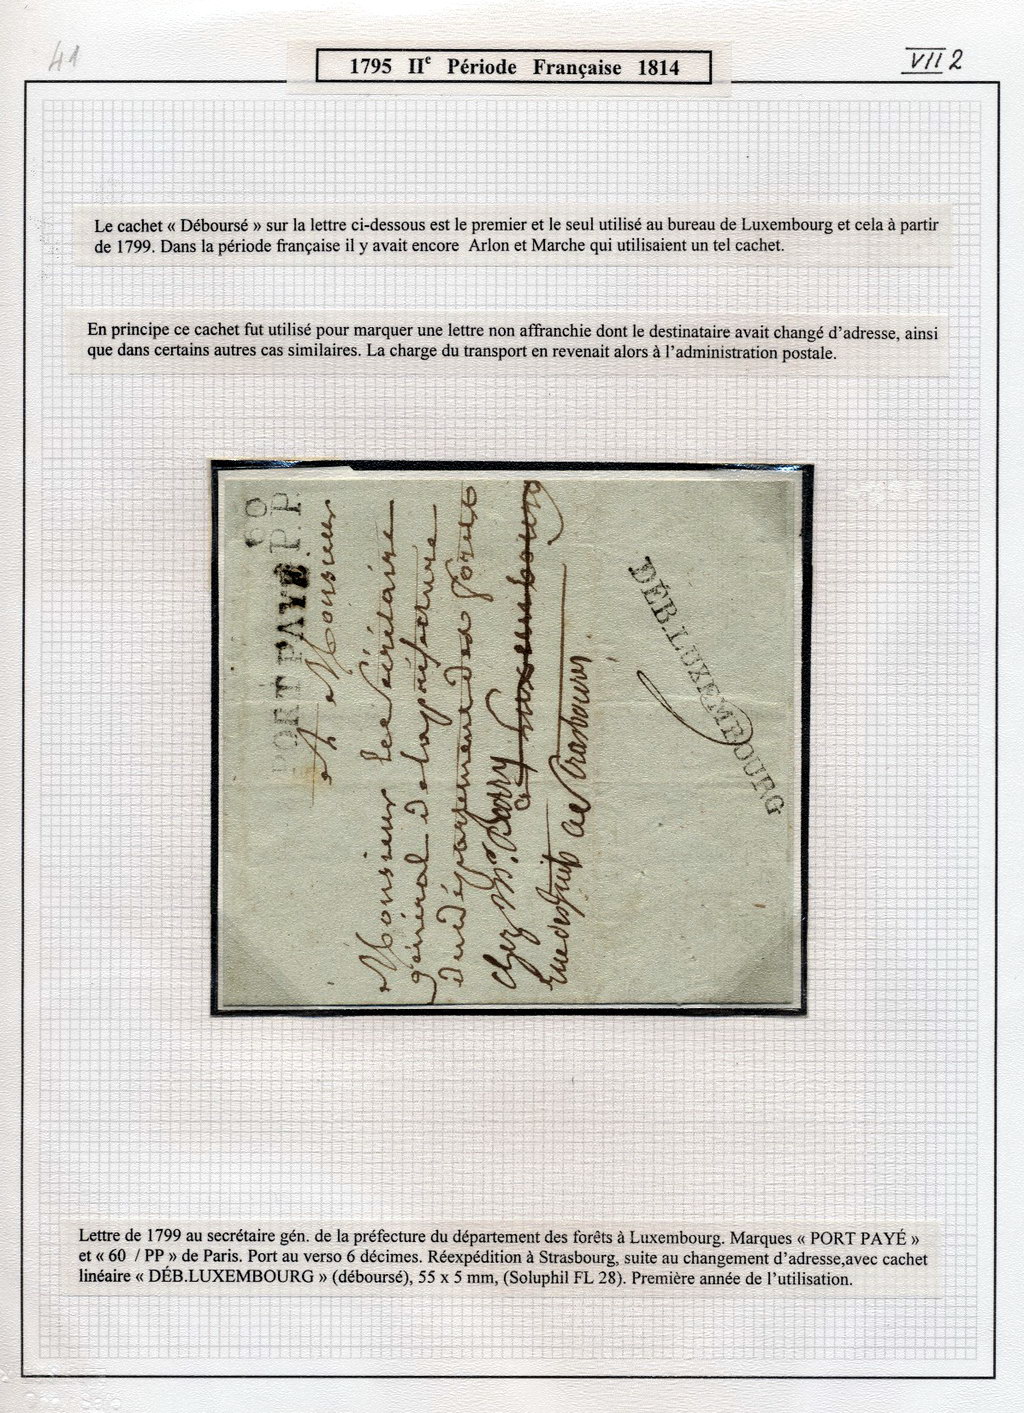 41
VII 2
1795 IIe Période Française 1814
Le cachet « Déboursé » sur la lettre ci-dessous est le premier et le seul utilisé au bureau de Luxembourg et cela à partir
de 1799. Dans la période française il y avait encore Arlon et Marche qui utilisaient un tel cachet.
En principe ce cachet fut utilisé pour marquer une lettre non affranchie dont le destinataire avait changé d’adresse, ainsi
que dans certains autres cas similaires. La charge du transport en revenait alors à l’administration postale.
60
P.P.
PORT PAYÉ
A Monsieur
Monsieur le Secrétaire
général de la préfecture
du département des forets
à Luxembourg
chez
rue des
DÉB.LUXEMBOURG
Lettre de 1799 au secrétaire gén. de la préfecture du département des forêts à Luxembourg. Marques « PORT PAYÉ »
et « 60 / PP » de Paris. Port au verso 6 décimes. Réexpédition à Strasbourg, suite au changement d’adresse,avec cachet
linéaire « DÉB.LUXEMBOURG » (déboursé), 55 x 5 mm, (Soluphil FL 28). Première année de l’utilisation.